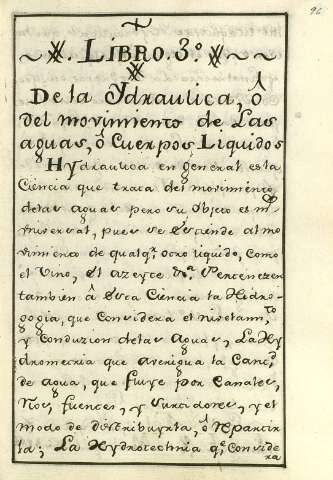 96
LIBRO. 3º
De la Ydraulica, ô
del movimiento de Las
aguas, ô Cuerpos Liquidos
Hydraulica en general es la
Ciencia que trata del movimiento
delas aguas pero su objeto es
universal, pues se estiende al mo-
vimiento de qualqr. otro liquido, como
el Vino, el azeyte &a. Pertenezen
tambien â esta Ciencia la Hidro-
gogia, que considera el nivelamto.
y conduzion delas aguas, La Hy
drometria que averigua la Cantd.
de agua, que fluye por Canales,
Rios, fuentes, y surtidores, y el
modo de distribuyrla, ô Repartir
la; La Hydrotechnia qe. Conside
ra